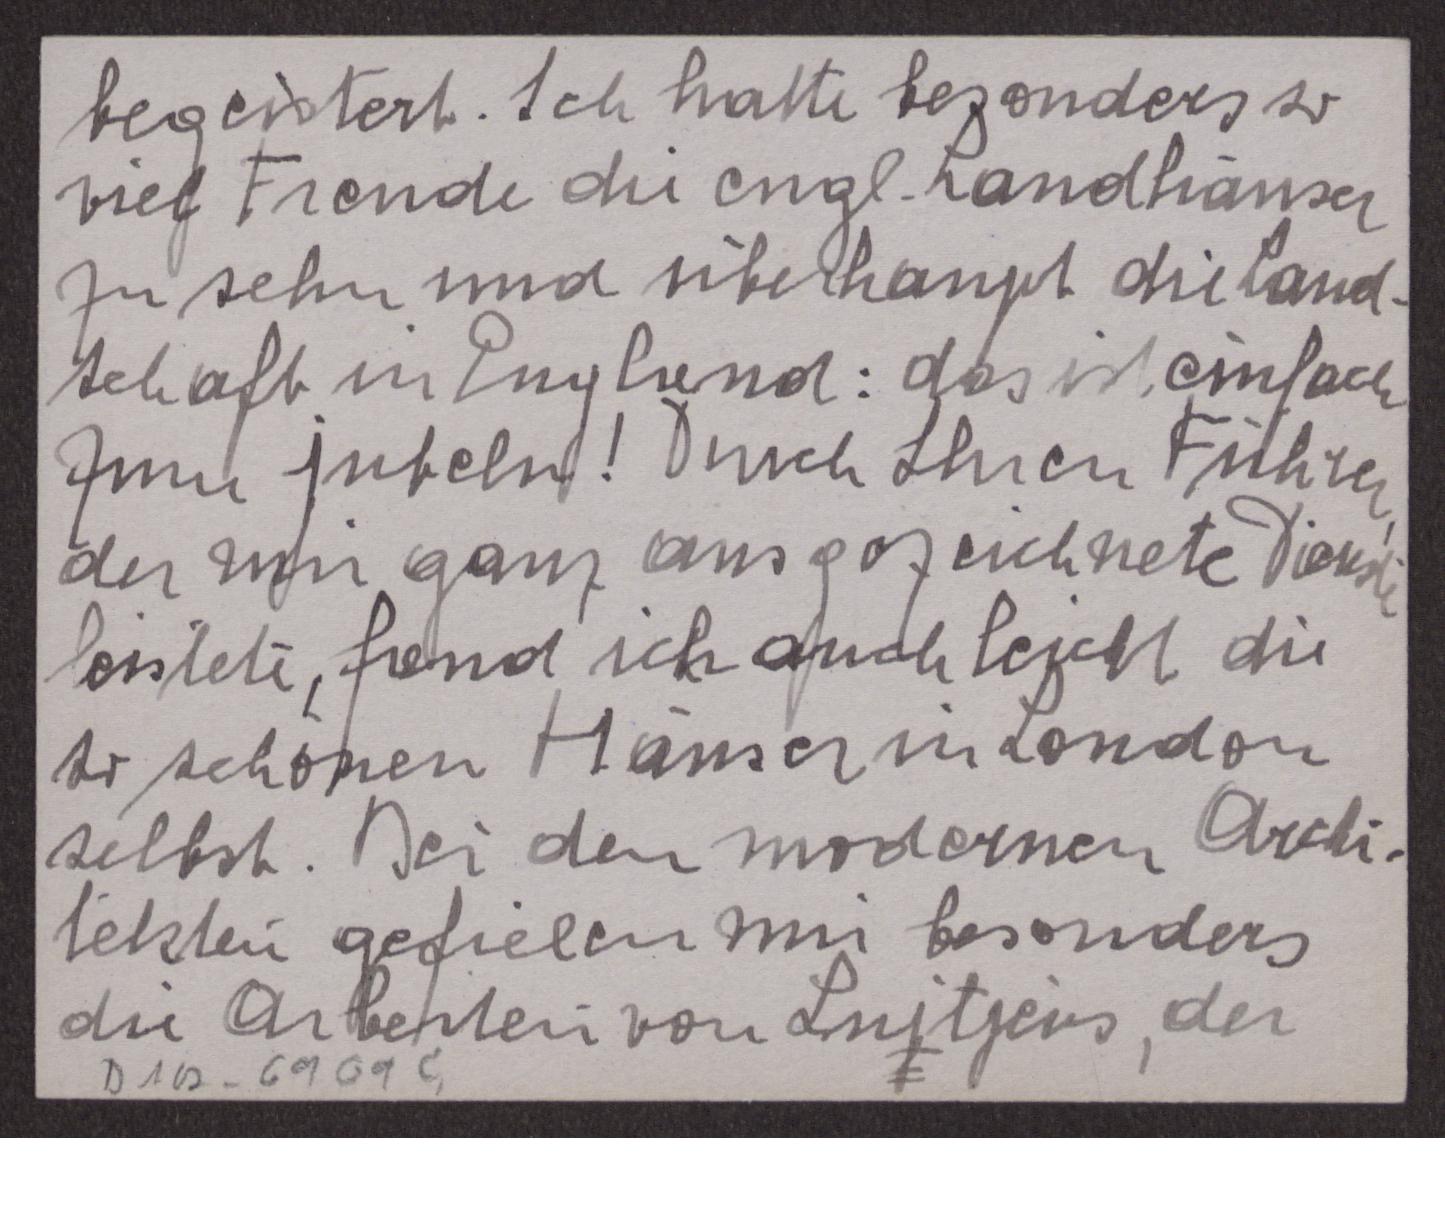 begeistert. Ich hatte besonders so
viel Freude die engl. Landhäuser
zu sehn und überhaupt die Land-
schaft in England: das ist einfach
zum jubeln! Durch Ihren Führer,
der mir ganz ausgezeichnete Dienste
leistete, fand ich auch leicht die
so schönen Häuser in London
selbst. Bei den modernen Archi-
tekten gefielen mir besonders
die Arbeiten von Lujtjens, der